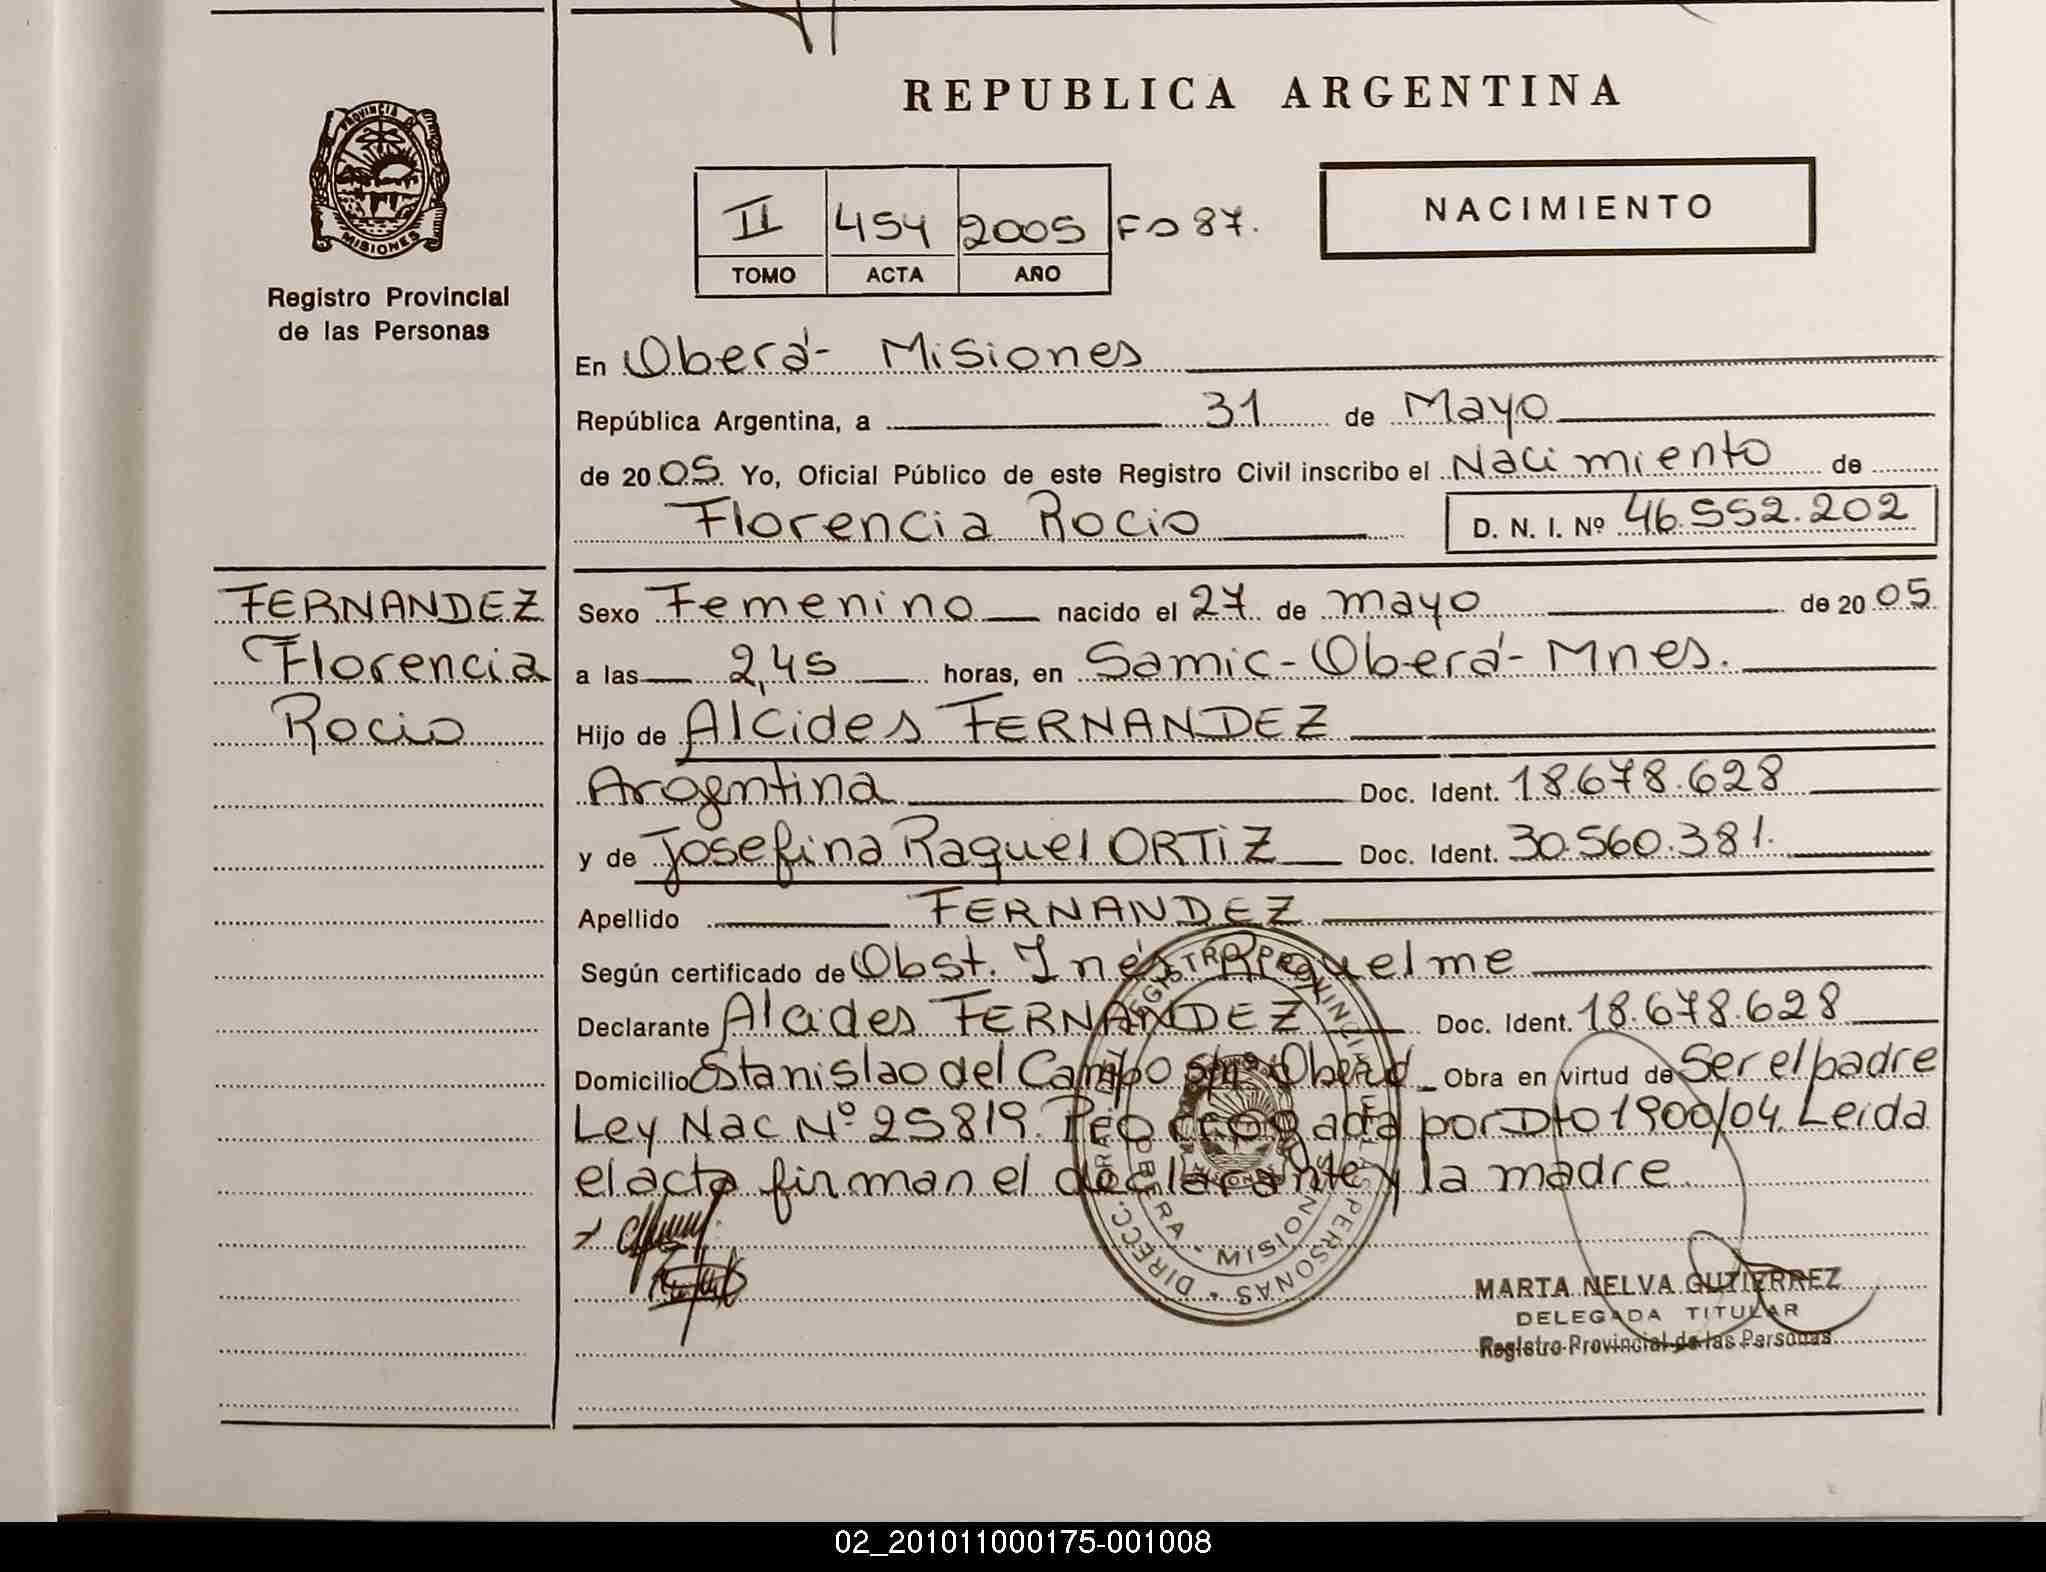 REPUBLICA ARGENTINA
PROVINCIA DE
MISIONES
Registro Provincial
de las Personas
II 454 2005 Fo 87.
TOMO ACTA AÑO
NACIMIENTO
En Oberá- Misiones
República Argentina, a 31 de Mayo
de 2005 Yo, Oficial Público de este Registro Civil inscribo el Nacimiento de
Florencia Rocio D. N. I. Nº 46.552.202
FERNANDEZ
Florencia
Rocio
Sexo Femenino nacido el 27 de mayo de 2005
a las 2,45 horas, en Samic-Oberá-Mnes.
Hijo de Alcides FERNANDEZ
Argentina Doc. Ident. 18.678.628
y de Josefina Raquel ORTIZ Doc. Ident. 30.560.381.
Apellido FERNANDEZ
Según certificado de Obst. Inés Riquelme
Declarante Alcides FERNANDEZ Doc. Ident. 18.678.628
Domicilio Estanislao del Campo s/nº Oberá Obra en virtud de Ser el padre
Ley Nac Nº 25819. Prorrogada por Dto 1900/04. Leida
el acta firman el declarante y la madre
DIRECC. REGISTRO PROVINCIAL DE LAS PERSONAS
OBERA - MISIONES
MARTA NELVA GUTIERREZ
DELEGADA TITULAR
Registro Provincial de las Personas
02_201011000175-001008